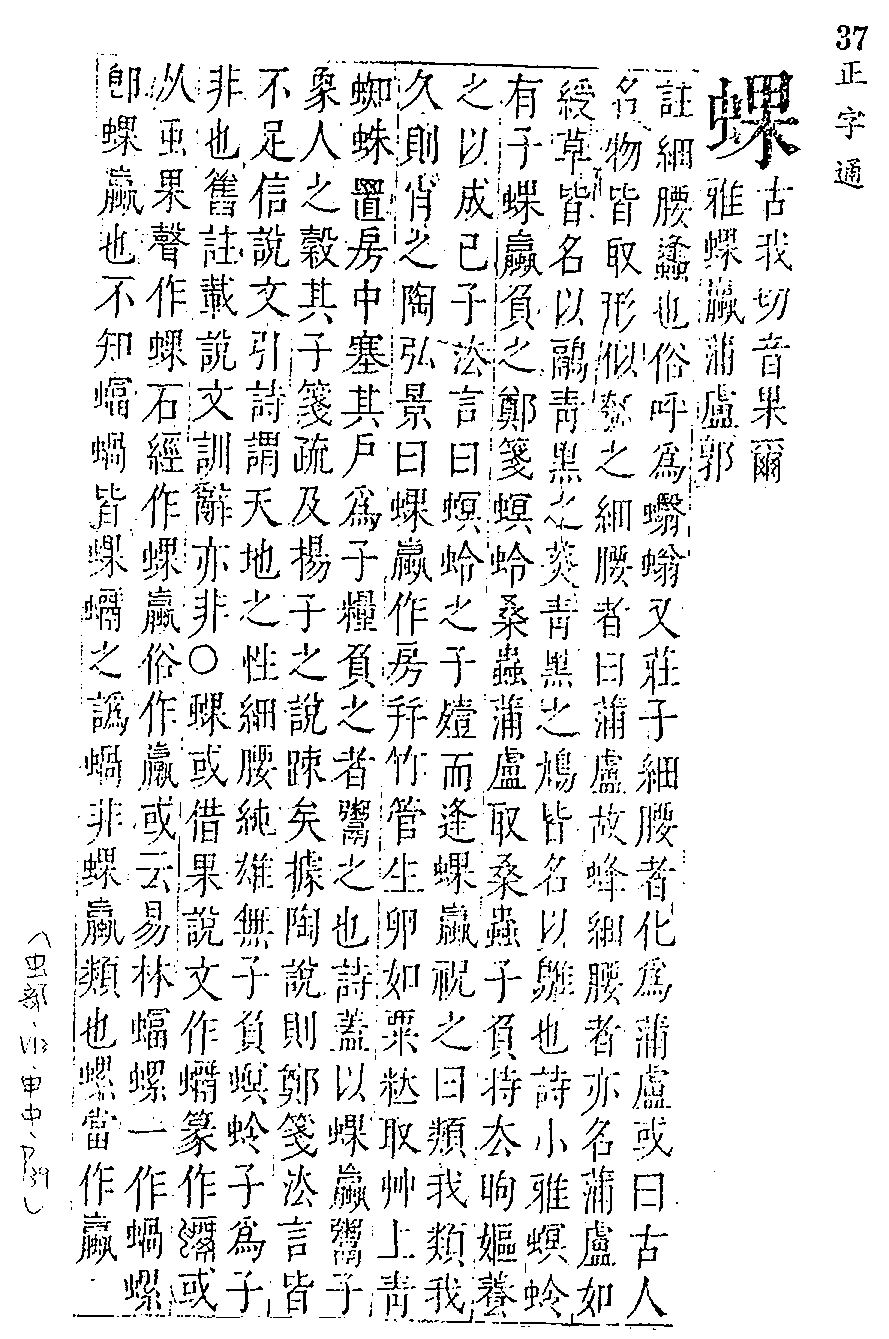 37
正字通
蜾
古我切音果爾
雅蜾蠃蒲盧郭
註細腰蠭也俗呼爲蠮螉又莊子細腰者化爲蒲盧或曰古人
名物皆取形似瓠之細腰者曰蒲盧故蜂細腰者亦名蒲盧如
綬草皆名以鷊靑黑之菼靑黑之鳩皆名以鵻也詩小雅螟蛉
有子蜾蠃負之鄭箋螟蛉桑蟲蒲盧取桑蟲子負持去呴嫗養
之以成己子法言曰螟蛉之子殪而逢蜾蠃祝之曰類我類我
久則肖之陶弘景曰蜾蠃作房並竹管生卵如粟粒取艸上靑
蜘蛛置房中塞其戶爲子糧負之者鬻之也詩蓋以蜾蠃鬻子
衆人之穀其子箋疏及揚子之說踈矣據陶說則鄭箋法言皆
不足信說文引詩謂天地之性細腰純雄無子負螟蛉子爲子
非也舊註載說文訓辭亦非○蜾或借果說文作蠣篆作或
从虫果聲作蜾石經作蜾蠃俗作蠃或云易林蝠螺一作蝸螺
卽蜾蠃也不知蝠蝸皆蜾之譌蝸非蜾蠃類也螺當作蠃
(虫部、申中、P39)